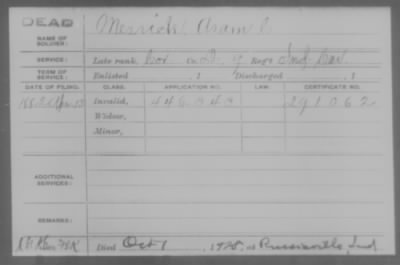 DEAD
NAME OF SOLDIER: Merrick Asam C
SERVICE: Late rank, Cor. Co. D, 9 Regt Ind. Cav.
TERM OF SERVICE: Enlisted , 1 Discharged , 1
DATE OF FILING. CLASS. APPLICATION NO. LAW. CERTIFICATE NO.
1882 Apr 13 Invalid, 446343 291062
Widow,
Minor,
ADDITIONAL SERVICES:
REMARKS:
Died Oct 1, 1925, at Russiaville, Ind